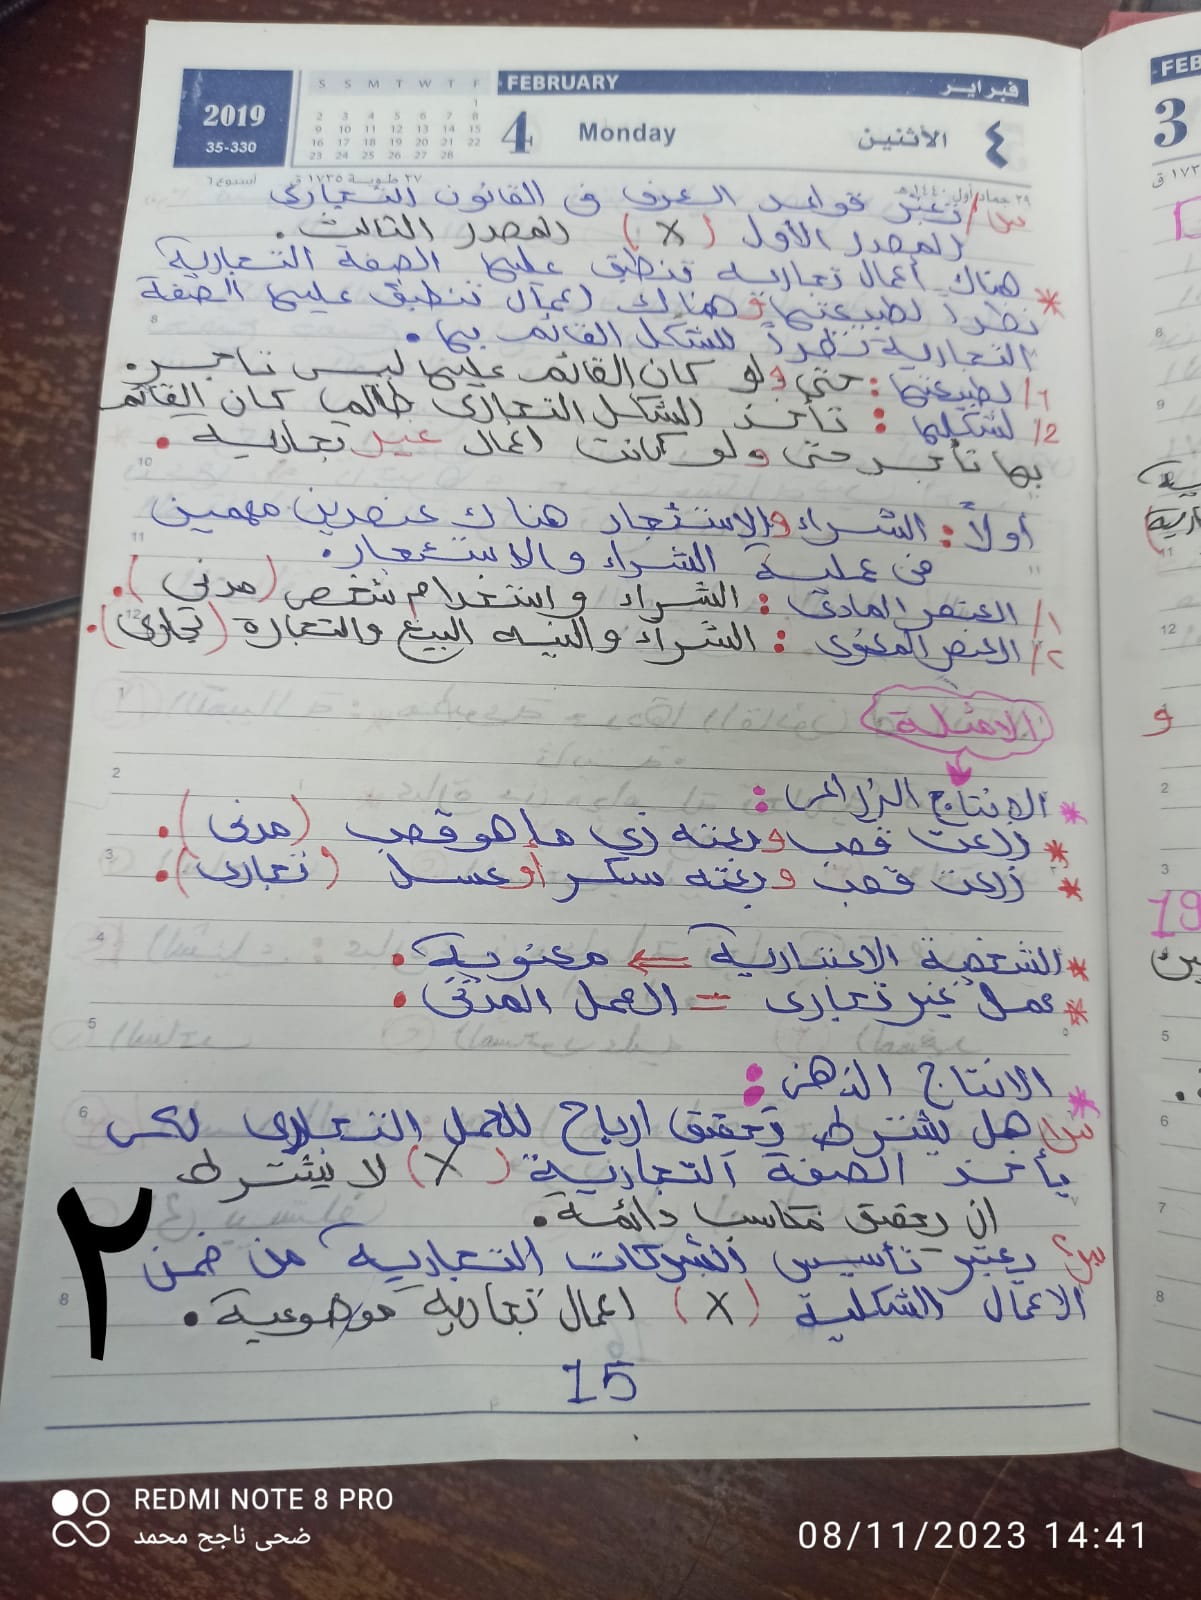 2019
35-330
S S M T W T F
1
2 3 4 5 6 7 8
9 10 11 12 13 14 15
16 17 18 19 20 21 22
23 24 25 26 27 28
FEBRUARY فبراير
4 Monday الأثنين ٤
٢٩ جماد أول ١٤٤٠ هـ ٢٧ طوبة ١٧٣٥ ق أسبوع ٦
س/ تعتبر قواعد العرف فى القانون التجارى
المصدر الأول (X) المصدر الثالث.
* هناك أعمال تجارية تنطبق عليها الصفة التجارية
نظراً لطبيعتها وهناك اعمال تنطبق عليها الصفة
التجارية نظراً للشكل القائم بها.
1/ لطبيعتها: حتى ولو كان القائم عليها ليس تاجر.
2/ لشكلها: تأخذ الشكل التجارى طالما كان القائم
بها تأجر حتى ولو كانت اعمال غير تجارية.
أولاً: الشراء والاستئجار هناك عنصرين مهمين
فى عملية الشراء والاستئجار.
١/ العنصر المادى: الشراء واستخدام شخص (مدنى).
٢/ العنصر المعنوى: الشراء والنيه البيع والتجارة (تجارى).
الامثلة
* الإنتاج الزراعى:
* زرعت قصب وبعته زى ما هو قصب (مدنى).
* زرعت قصب وبعته سكر او عسل (تجارى).
* الشخصية الاعتبارية ← معنوية.
* عمل غير تجارى = العمل المدنى.
* الانتاج الذهنى:
س/ هل يشترط تحقيق ارباح للعمل التجارى لكى
يأخذ الصفة التجارية (X) لا يشترط
ان يحقق مكاسب دائمة.
س/ يعتبر تأسيس الشركات التجارية من ضمن
الاعمال الشكلية (X) اعمال تجارية موضوعية.
15
٢
REDMI NOTE 8 PRO
ضحى ناجح محمد
08/11/2023 14:41